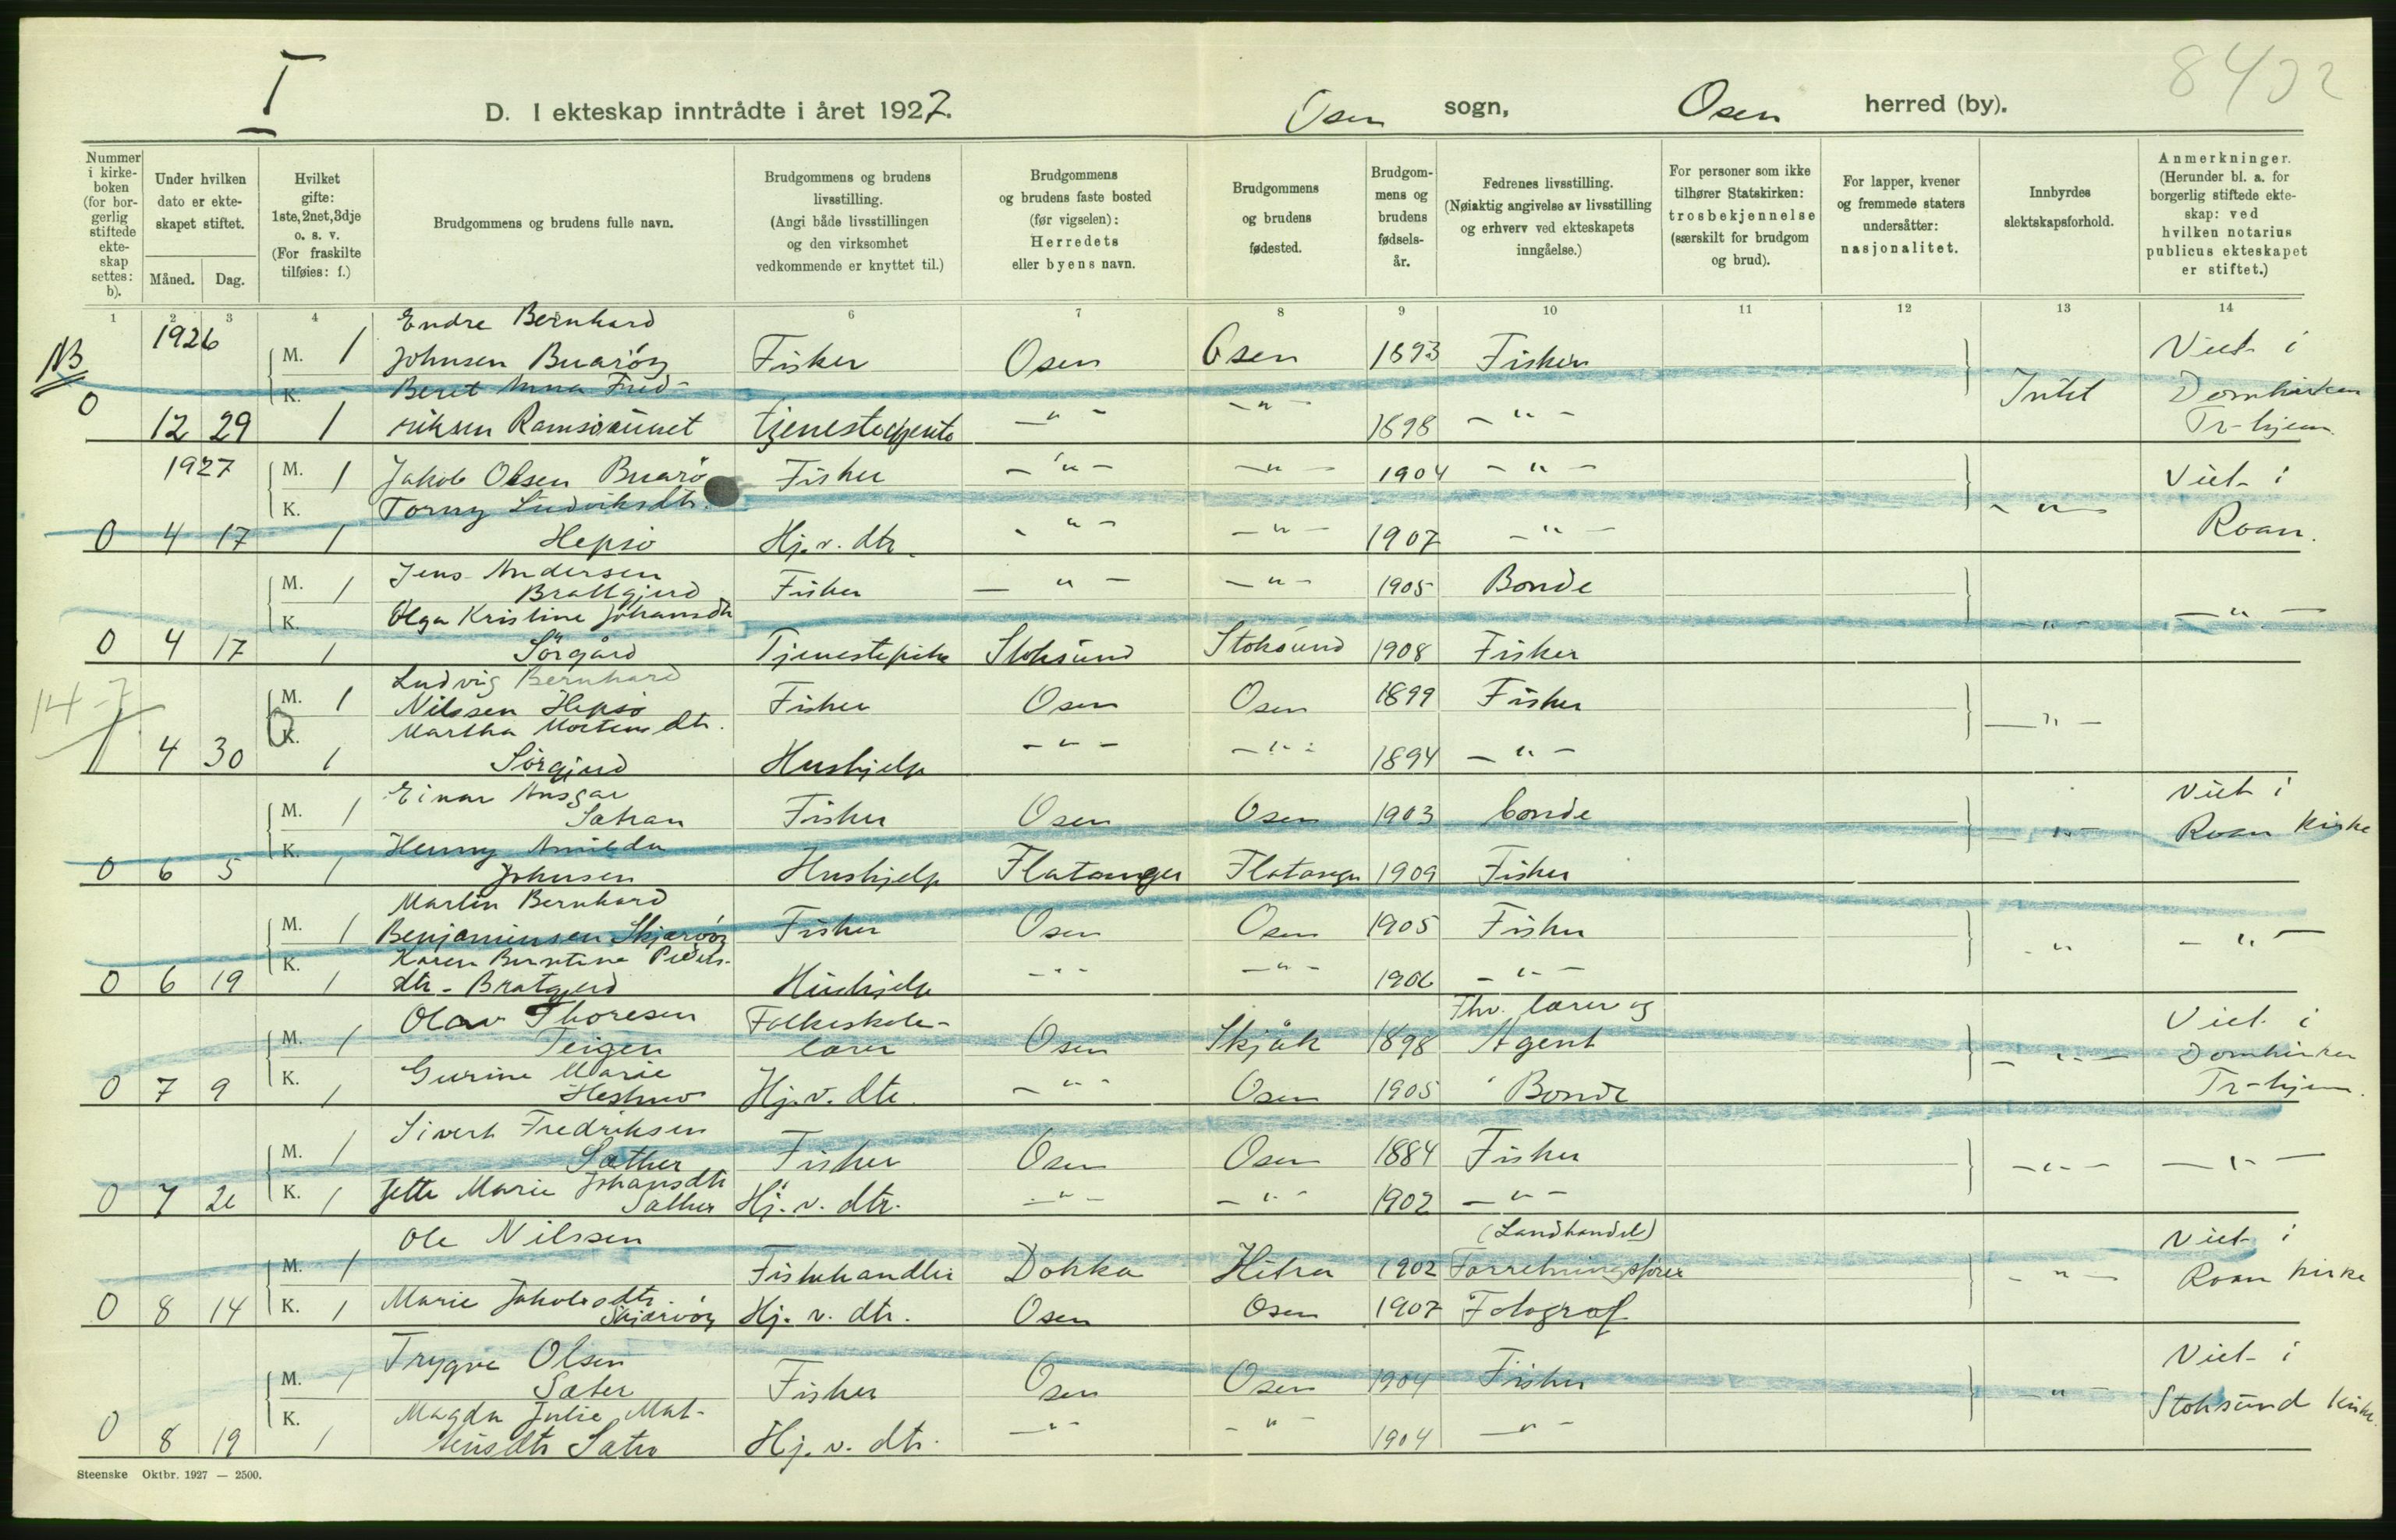 I
8402
D. I ekteskap inntrådte i året 1927.
Osen sogn,
Osen herred (by).
Nummer i kirke-boken (for bor-gerlig stiftede ekte-skap settes: b).
Under hvilken dato er ekte-skapet stiftet.
Måned. Dag.
Hvilket gifte: 1ste, 2net, 3dje o. s. v. (For fraskilte tilføies: f.)
Brudgommens og brudens fulle navn.
Brudgommens og brudens livsstilling. (Angi både livsstillingen og den virksomhet vedkommende er knyttet til.)
Brudgommens og brudens faste bosted (før vigselen): Herredets eller byens navn.
Brudgommens og brudens fødested.
Brudgom-mens og brudens fødsels-år.
Fedrenes livsstilling. (Nøiaktig angivelse av livsstilling og erhverv ved ekteskapets inngåelse.)
For personer som ikke tilhører Statskirken: trosbekjennelse (særskilt for brudgom og brud).
For lapper, kvener og fremmede staters undersåtter: nasjonalitet.
Innbyrdes slektskapsforhold.
Anmerkninger. (Herunder bl. a. for borgerlig stiftede ekte-skap: ved hvilken notarius publicus ekteskapet er stiftet.)
1 2 3 4 6 7 8 9 10 11 12 13 14
Endre Bernhard
NB 1926 M. 1 Johnsen Buarøy Fisker Osen Osen 1893 Fisker Viet i
K. Beret Anna Fred- Intet Domkirken
0 12 29 1 riksen Ramsøsunet tjenestejente -"- -"- 1898 -"- Tr-hjem.
1927 M. 1 Jakob Olsen Buarö Fisker -"- -"- 1904 -"- Viet i
K. Torny Ludviksdtr. -"-
0 4 17 1 Hepsö Hj. v. dtr. -"- -"- 1907 -"- Roan.
Jens Andersen
M. 1 Brattgjerd Fisker -"- -"- 1905 Bonde
K. Olga Kristine Johansdtr -"- -"-
0 4 17 1 Sörgård Tjenestepike Stoksund Stoksund 1908 Fisker
Ludvig Bernhard
14-7 M. 1 Nilssen Hepsö Fisker Osen Osen 1899 Fisker -"-
K. Martha Mortensdtr.
4 30 1 Sörgjerd Hushjelp -"- -"- 1894 -"-
Einar Ansgar Viet i
M. 1 Sakan Fisker Osen Osen 1903 bonde
K. Henny Amilda -"- Roan kirke
0 6 5 1 Johnsen Hushjelp Flatanger Flatanger 1909 Fisker
Martin Bernhard
M. 1 Benjaminsen Skjærvöy Fisker Osen Osen 1905 Fisker -"- -"-
K. Karen Berntine Peders-
0 6 19 1 dtr. Bratgjerd Hushjelp -"- -"- 1906 -"-
Olav Thoresen Folkeskole- Fhv. lærer og Viet i
M. 1 Teigen lærer Osen Skjåk 1898 Agent -"- Domkirken
K. Gurine Marie
0 7 9 1 Hj. v. dtr. -"- Osen 1905 Bonde Tr-hjem.
Sivert Fredriksen
M. 1 Sæther Fisker Osen Osen 1884 Fisker -"- -"-
K. 1 Jette Marie Johansdtr
0 7 Sæther Hj. v. dtr. -"- -"- 1902 -"-
Ole Nilssen (Landhandel) Viet i
M. 1 Fiskehandler Dokka Hitra 1902 Forretningsfører -"- Roan kirke
0 8 14 K. 1 Marie Jakobsdtr. Skjærvöy Hj. v. dtr. Osen Osen 1907 Fotograf
Trygve Olsen Viet i
M. 1 Sæter Fisker Osen Osen 1904 Fisker -"- Stoksund kirke.
K. Magda Julie Mat-
0 8 19 1 Hj. v. dtr. -"- -"- 1904 -"-
Steenske Oktbr. 1927 — 2500.